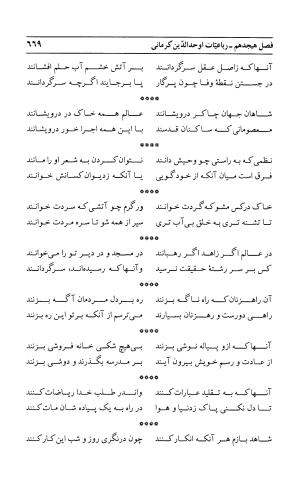 فصل هیجدهم ـ رباعیّات اوحدالدّین کرمانی ۶۶۹
آنها که ز اصل عقل سرگردانند بر آتش خشم آب حلم افشانند
در جستن نقطهٔ وفا چون پرگار پا برجایند اگرچه سرگردانند
****
شاهان جهان چاکر درویشانند عالم همه خاک در درویشانند
معصومانی که ساکنان قدسند با این همه اجرا خور درویشانند
****
نظمی که به راستی چو وحیش دانند نتوان کردن به شعر او را مانند
فرق است میان آنکه از خود گویی یا آنکه ز دیوان کسانش خوانند
****
خاک در کس مشو که گردت خوانند ور گرم چو آتشی که سردت خوانند
تا تشنه تری به خلق بی آب تری سیر از همه شو تا سره مردت خوانند
****
در عالم اگر زاهد اگر رهبانند در مسجد و در دیر تو را می‌خوانند
کس بر سر رشتهٔ حقیقت نرسید وآنها که رسیده‌اند، سرگردانند
****
آن راهزنان که راه ناگه بزنند ره بر دل مردمان آگه بزنند
راهی دورست و رهزنان بسیارند می‌ترسم از آنکه بر تو این ره بزنند
****
آنها که ازو پیاله نوشی بزنند بی‌هیچ شکی خانه فروشی بزنند
از عادت و رسم خویش بیرون آیند بر مدرسه بگذرند و دوشی بزنند
****
آنها که به تقلید عبارات کنند واندر طلب خدا ریاضات کنند
تا دل نکنی پاک ز دنیا و هوا در راه به یک پیاده شان مات کنند
****
شاهد بازم هر آنکه انکار کنند چون درنگری روز و شب این کار کنند